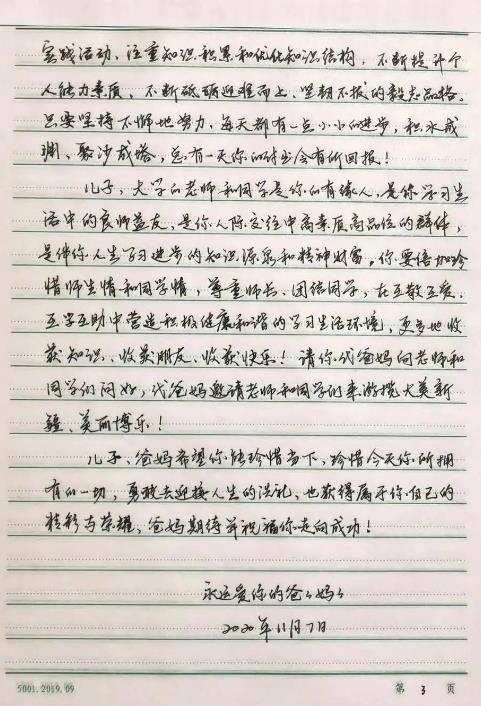 实践活动、注重知识积累和优化知识结构，不断提升个
人能力素质、不断砥砺迎难而上、坚韧不拔的毅志品格。
只要坚持不懈地努力，每天都有一点小小的进步，积水成
渊、聚沙成塔，总有一天你的付出会有所回报！
儿子，大学的老师和同学是你的有缘人，是你学习生
活中的良师益友，是你人际交往中高素质高品位的群体，
是伴你人生学习进步的知识源泉和精神财富。你要倍加珍
惜师生情和同学情，尊重师长、团结同学，在互敬互爱、
互学互助中营造积极健康和谐的学习生活环境，更多地收
获知识、收获朋友、收获快乐！请你代爸妈向老师和
同学们问好，代爸妈邀请老师和同学们来游揽大美新
疆、美丽博乐！
儿子，爸妈希望你能珍惜当下，珍惜今天你所拥
有的一切，勇敢去迎接人生的洗礼，也获得属于你自己的
精彩与荣耀，爸妈期待并祝福你走向成功！
永远爱你的爸爸妈妈
2020年11月7日
5001.2019.09 第 3 页